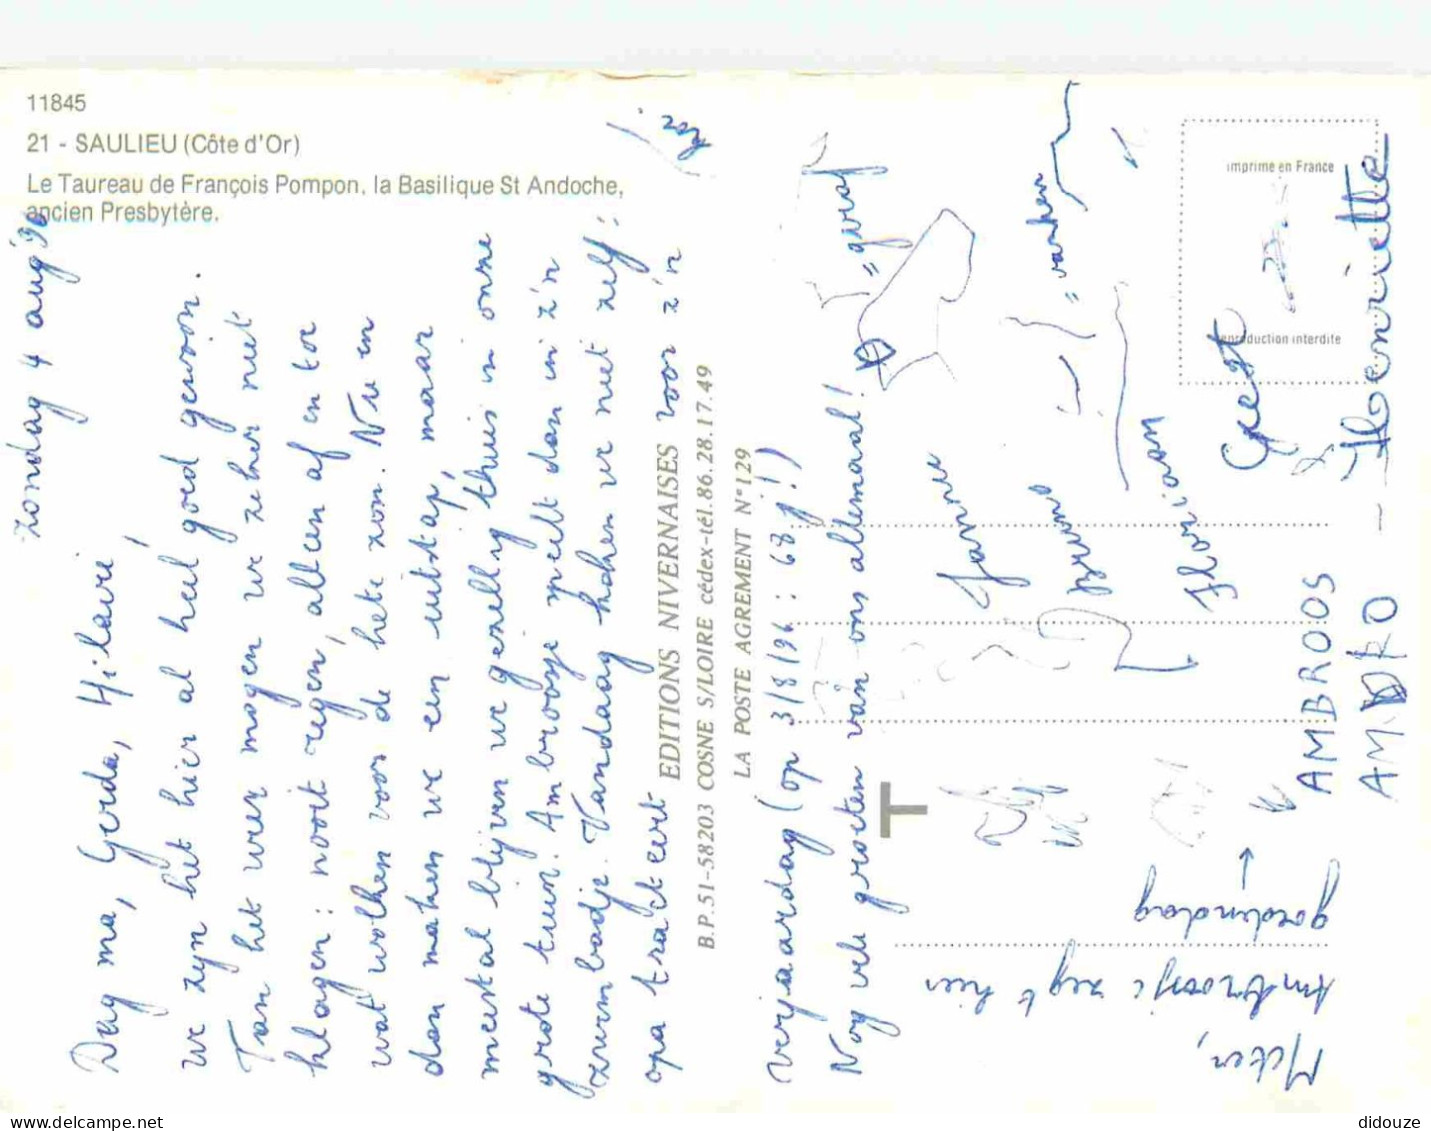 11845
21 - SAULIEU (Côte d'Or)
Le Taureau de François Pompon, la Basilique St Andoche,
ancien Presbytère.
zondag 4 aug '96
Dag ma, Gerda, Hilaire,
we zijn het hier al heel goed gewoon.
Van het weer mogen we zeker niet
klagen: nooit regen, alleen af en toe
wat wolken voor de hete zon. Nu en
dan maken we een uitstap, maar
meestal blijven we gezellig thuis in onze
grote tuin. Ambroosje speelt dan in z'n
zwembadje. Vandaag koken we niet zelf:
opa trakteert voor z'n
verjaardag (op 3/8/96: 68 j!)
Nog vele groeten van ons allemaal!
EDITIONS NIVERNAISES
B.P.51-58203 COSNE S/LOIRE cédex-tél.86.28.17.49
LA POSTE AGREMENT N°129
T
Imprimé en France
reproduction interdite
= giraf
= varken
Janne
Bruno
Floriaan
Geert
Henriette
AMBROOS
AMBRO
Meter,
Ambroosje zegt hier
goeiendag
didouze